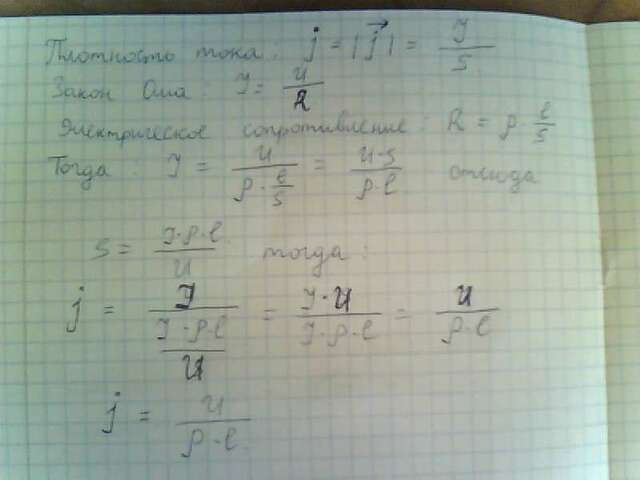 Плотность тока: j = |j⃗| = J/S
Закон Ома: J = U/R
Электрическое сопротивление: R = ρ · l/S
Тогда: J = U/(ρ · l/S) = U·S/(ρ·l) отсюда
S = J·ρ·l/U тогда:
j = J/(J·ρ·l/U) = J·U/(J·ρ·l) = U/(ρ·l)
j = U/(ρ·l)